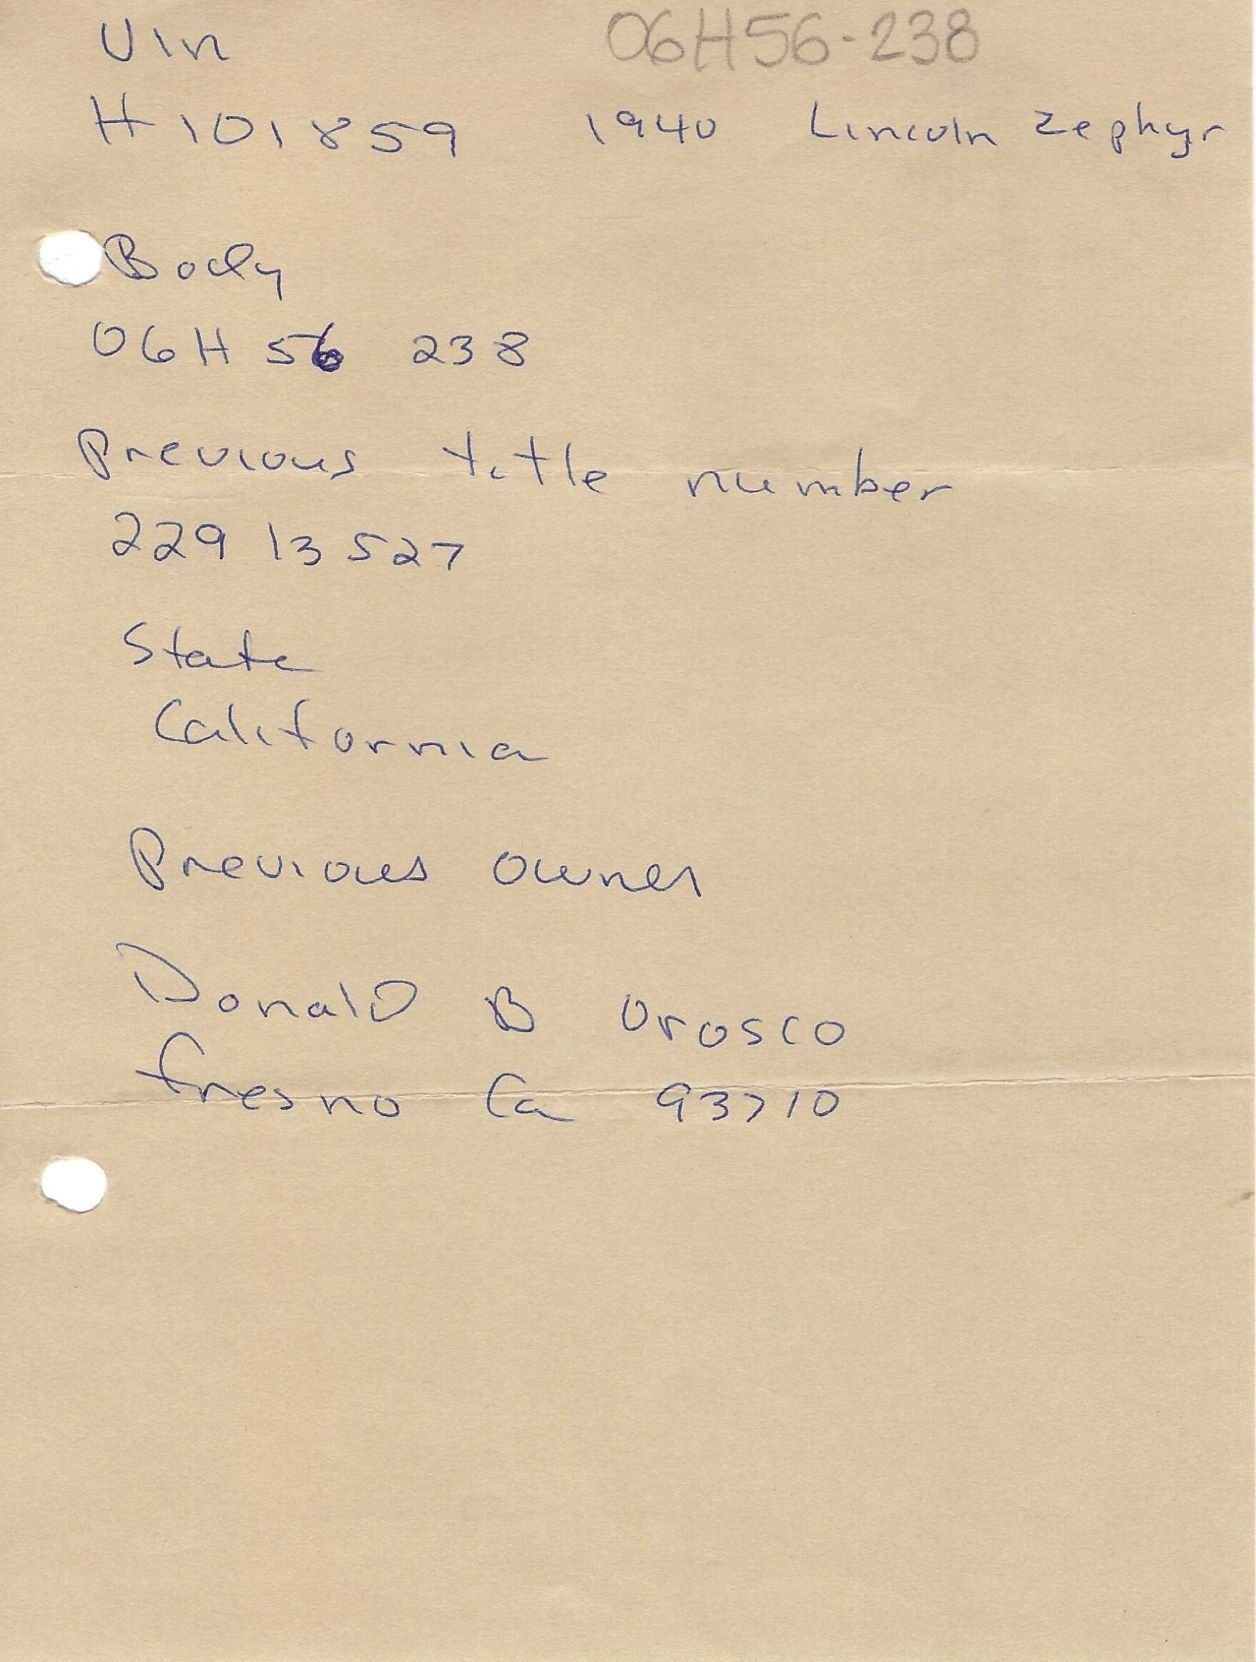 Vin 06H56-238
H101859 1940 Lincoln Zephyr
Body
06H 56 238
Previous title number
229 13 527
State
California
Previous owner
Donald B Orosco
fresno Ca 93710